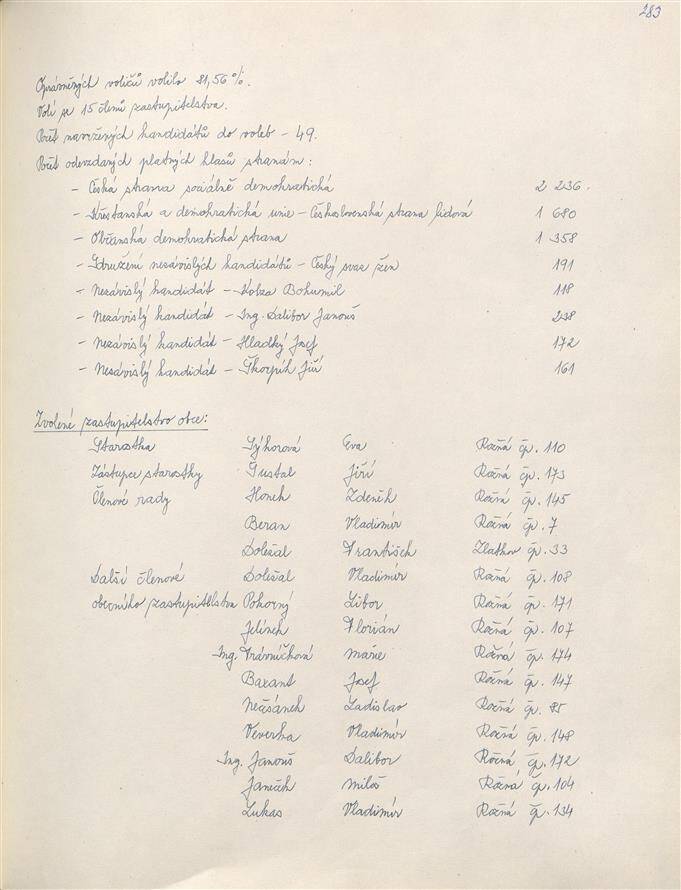 283
Oprávněných voličů volilo 81,56 %.
Volí se 15 členů zastupitelstva.
Počet navržených kandidátů do voleb - 49.
Počet odevzdaných platných hlasů stranám:
- Česká strana sociálně demokratická 2 236.
- Křesťanská a demokratická unie - Československá strana lidová 1 680
- Občanská demokratická strana 1 358
- Sdružení nezávislých kandidátů - Český svaz žen 191
- Nezávislý kandidát - Bohumil 118
- Nezávislý kandidát - Ing. Dalibor Janouš 238
- Nezávislý kandidát - Hladký Josef 172
- Nezávislý kandidát - Škorpík Jiří 161
Zvolené zastupitelstvo obce:
Starostka Sýkorová Eva Rožná čp. 110
Zástupce starostky Gustal Jiří Rožná čp. 173
Členové rady Honek Zdeněk Rožná čp. 145
Beran Vladimír Rožná čp. 7
Doležal František Zlatkov čp. 33
Další členové Doležal Vladimír Rožná čp. 108
obecního zastupitelstva Pokorný Libor Rožná čp. 171
Jelínek Florián Rožná čp. 107
Ing. Trávníčková Marie Rožná čp. 174
Baxant Josef Rožná čp. 147
Nečsánek Ladislav Rožná čp. 85
Veverka Vladimír Rožná čp. 148
Ing. Janouš Dalibor Rožná čp. 172
Janeček Miloš Rožná čp. 104
Lukas Vladimír Rožná čp. 134